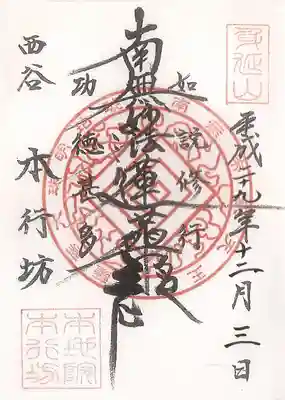 身延山
平成廿九年十二月三日
如説修行
南無妙法蓮華経
功徳甚多
西谷 本行坊
本地院
本行坊